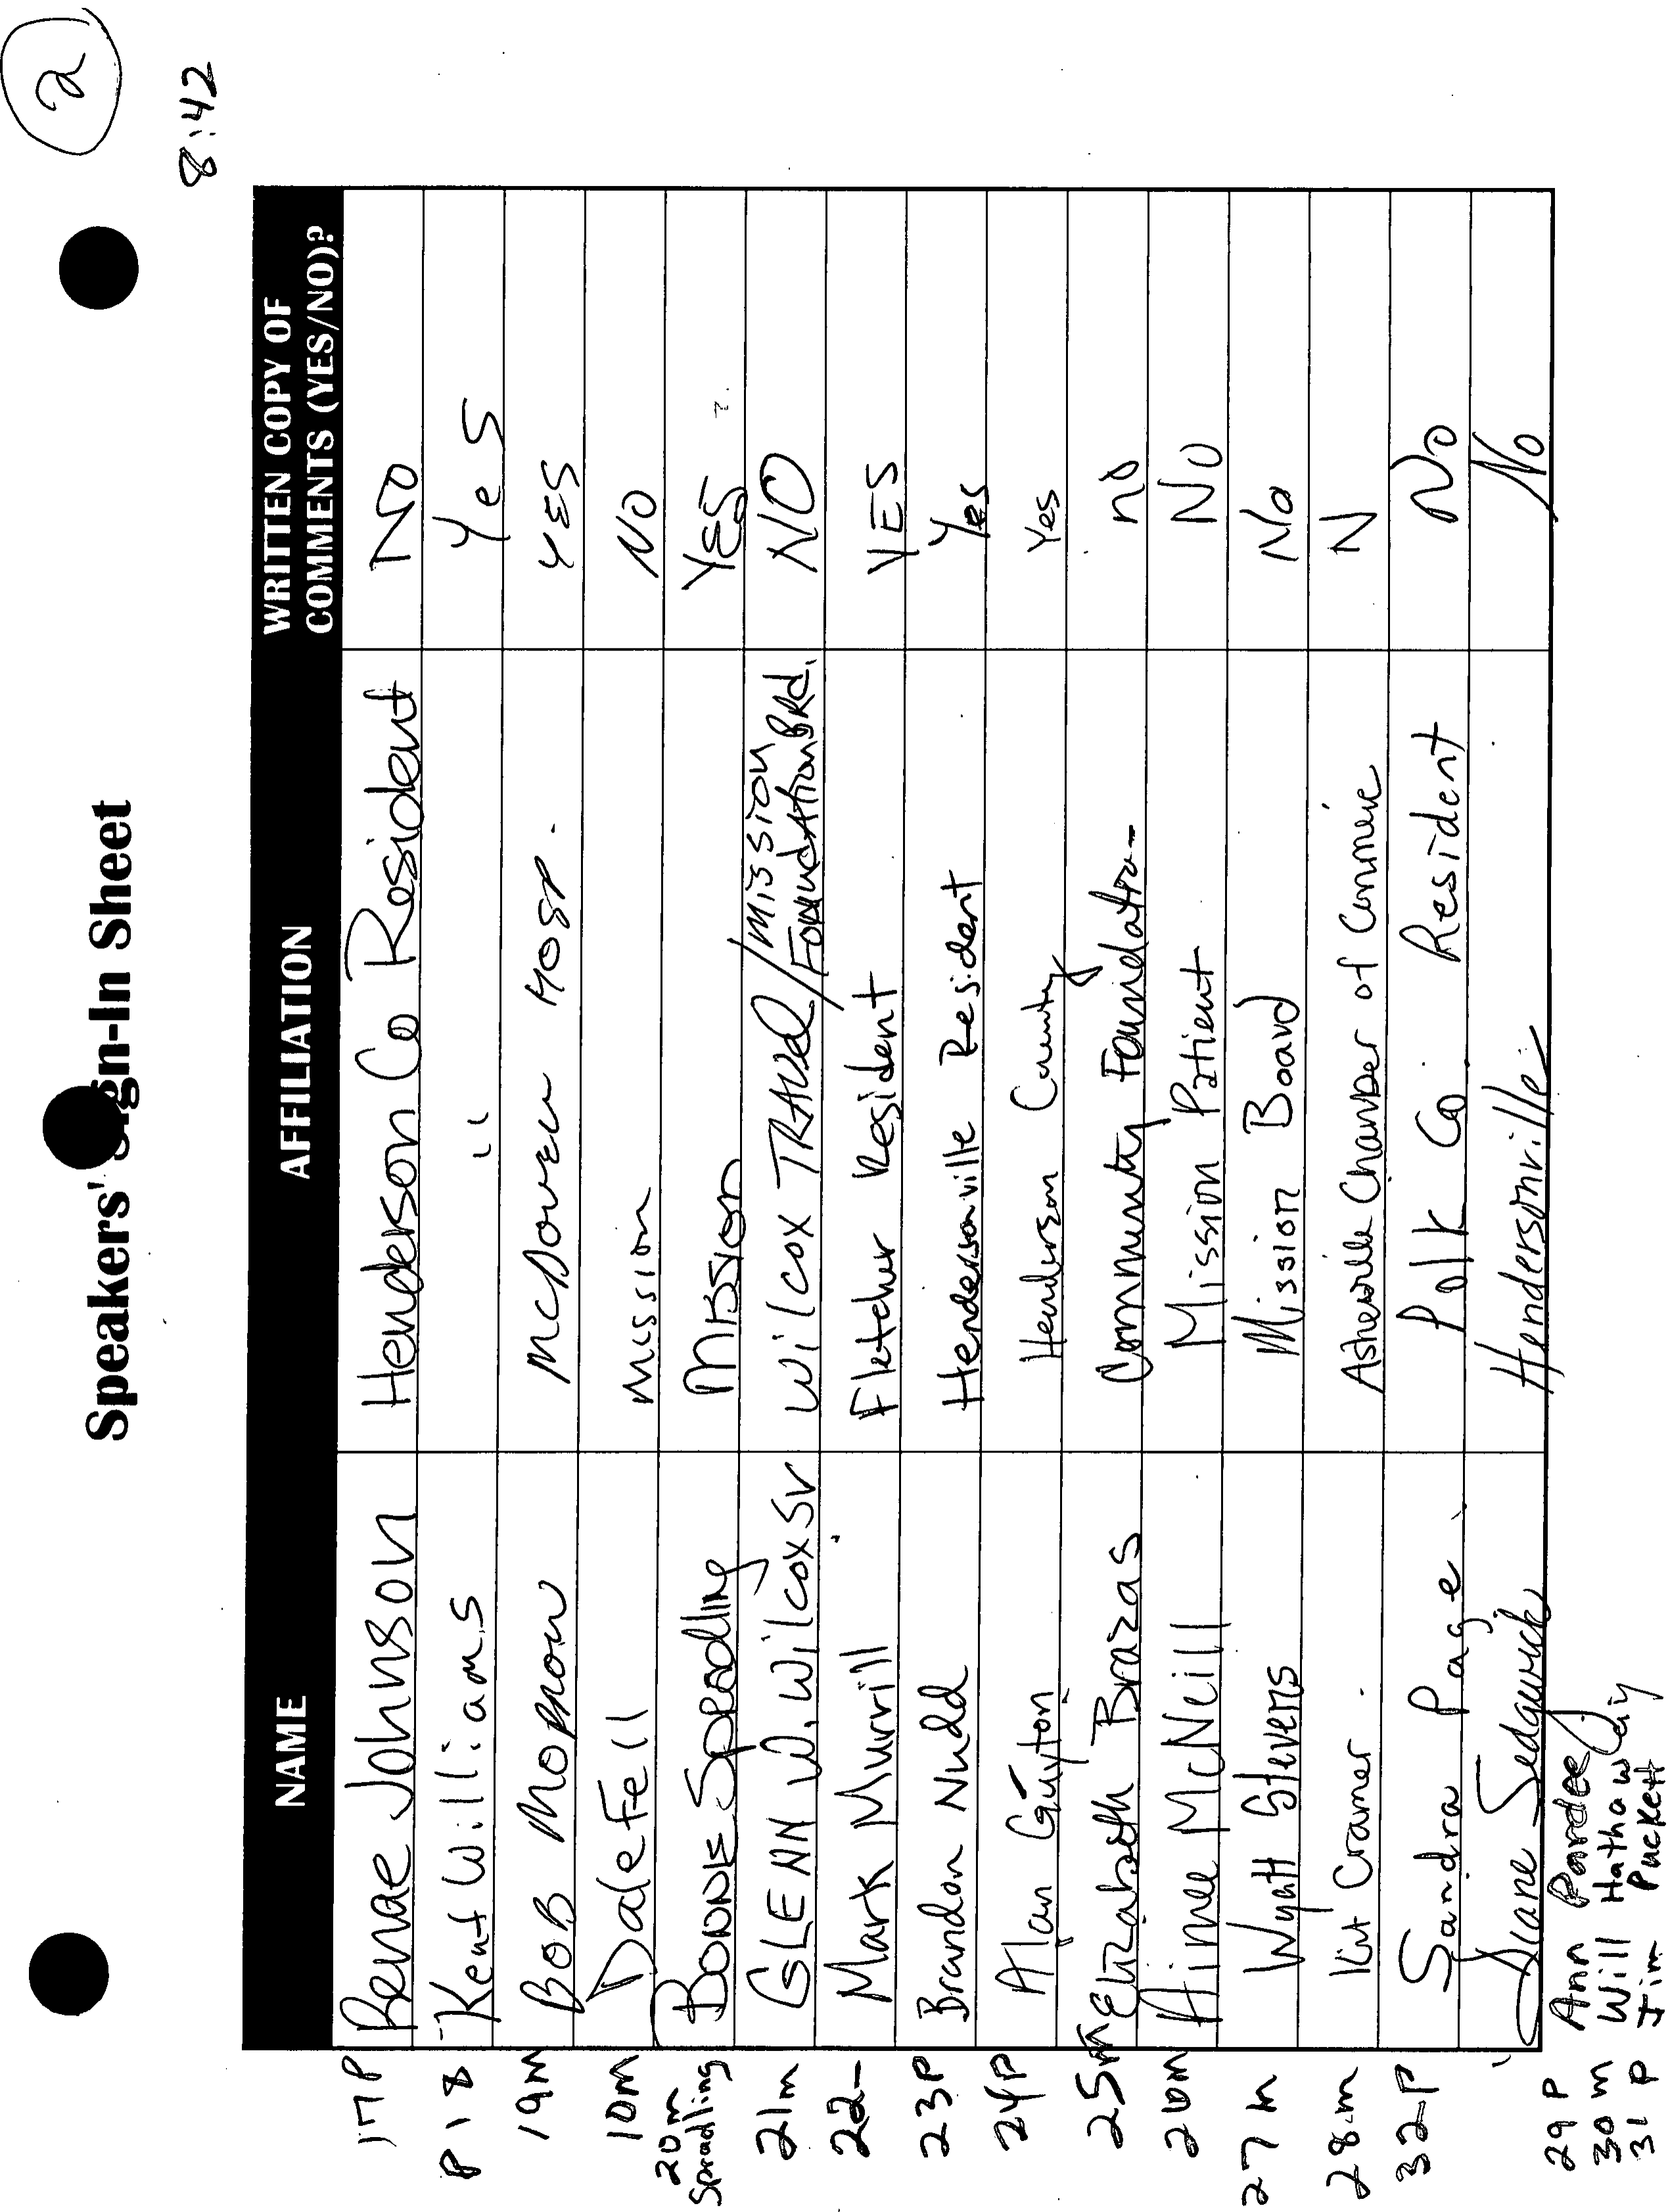 2
8:42
Speakers' Sign-In Sheet
NAME AFFILIATION WRITTEN COPY OF COMMENTS (YES/NO)?
17P Renae Johnson Henderson Co Resident NO
P 18 Kent Williams " Yes
19M BOB MORROW McDOWELL HOSP. YES
10M Dale Fell Mission NO
20M Spradling BONNE Spradling Mission YES
21M GLENN W. Wilcox Sr Wilcox TRAVEL / Mission Foundation BRd. NO
22- Mark Murvill Fletcher Resident YES
23P Brandon Nudd Hendersonville Resident Yes
24P Alan Guyton Henderson County Yes
25M Elizabeth Brazas Community Foundation no
26M Aimee McNeill Mission Patient NO
27 M Wyatt Stevens Mission Board No
28.M Kit Cramer Asheville Chamber of Commerce N
32-P Sandra Page Polk Co. Resident No
Diane Sedgwick Hendersonville No
29 P Ann Pardee
30 M Will Hathaway
31 P Jim Puckett